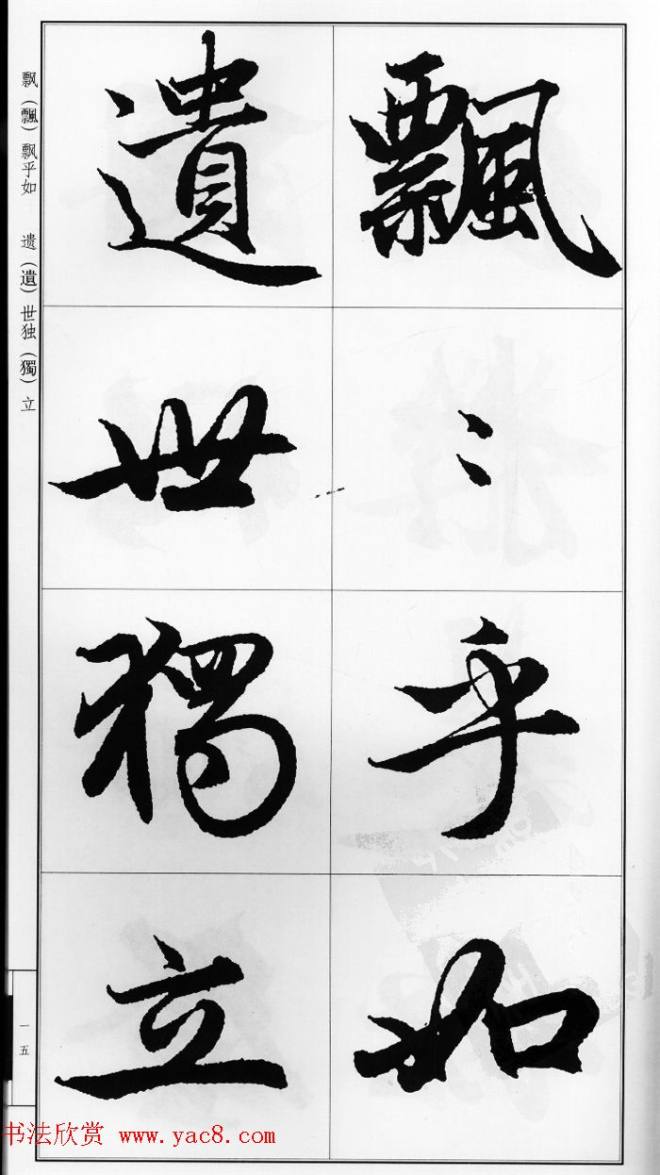 飄〻乎如
遺世獨立
飘（飄）飘乎如　遗（遺）世独（獨）立
一五
书法欣赏 www.yac8.com